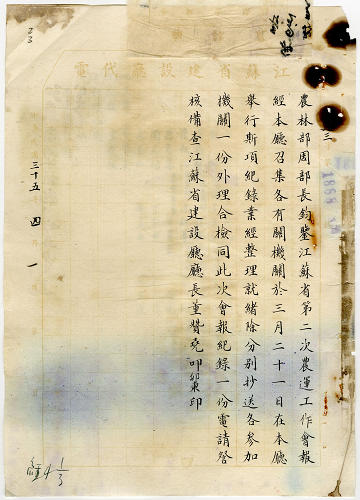 江蘇省建設廳代電
農林部周部長鈞鑒江蘇省第二次農運工作會報
經本廳召集各有關機關於三月二十一日在本廳
舉行斯項紀錄業經整理就緒除分別抄送各參加
機關一份外理合檢同此次會報紀錄一份電請詧
核備查江蘇省建設廳廳長董贊堯叩卯東印
三十五 四 一
1868